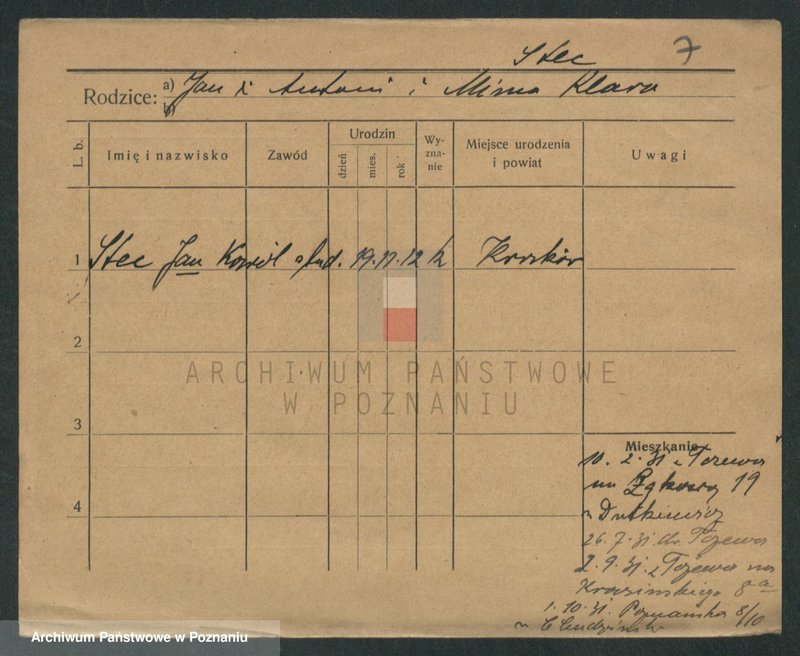 Stec 7
Rodzice: a) Jan i Antoni i Mima Klara
b)
L. b. Imię i nazwisko Zawód Urodzin dzień mies. rok Wy-zna-nie Miejsce urodzenia i powiat Uwagi
1 Stec Jan Karól stud. 19. 11. 12 k Kraków
2
ARCHIWUM PAŃSTWOWE
W POZNANIU
3
Mieszkanie
10. 2. 31 z Tczewa
na 19
4
u Dutkiewicz
26. 7. 31. do Tczewa
2. 9. 31. z Tczewa na
Krasińskiego 8a
1. 10. 31. Poznańska 8/10
u
Archiwum Państwowe w Poznaniu